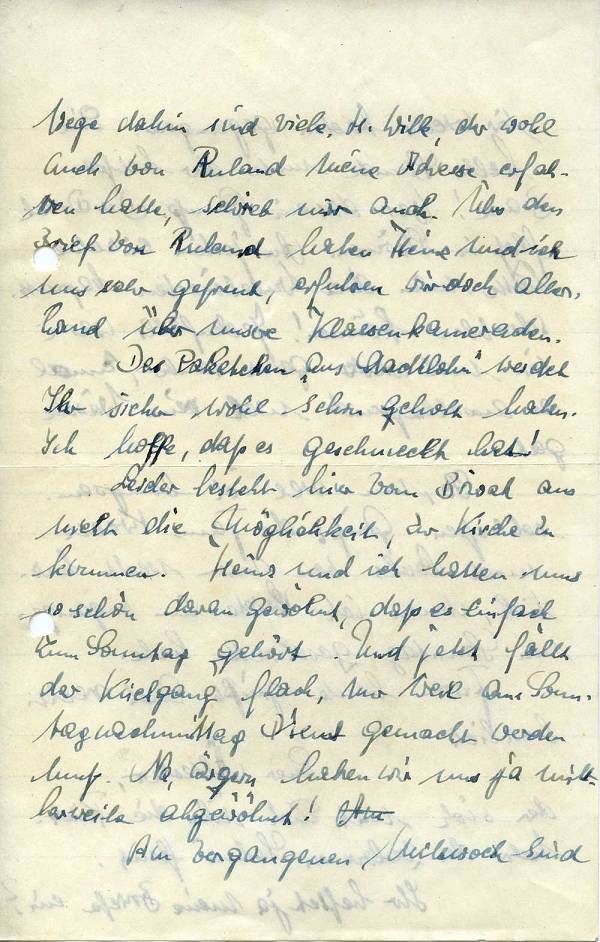 Wege dahin sind viele. H. Wilk, der wohl
auch von Ruland meine Adresse erfah-
ren hatte, schrieb mir auch. Über den
Brief von Ruland haben Heinz und ich
uns sehr gefreut, erfuhren wir doch aller-
hand über unsere Klassenkameraden.
Das Paketchen „aus Stadtlohn" werdet
Ihr sicher wohl schon geholt haben.
Ich hoffe, daß es geschmeckt hat!
Leider besteht hier vom Biwak aus
nicht die Möglichkeit, zur Kirche zu
kommen. Heinz und ich hatten uns
so schön daran gewöhnt, daß es einfach
zum Sonntag gehört. Und jetzt fällt
der Kirchgang flach, nur weil am Sonn-
tagnachmittag Dienst gemacht werden
muß. Na, ärgern haben wir uns ja mitt-
lerweile abgewöhnt!
Am vergangenen Mittwoch sind